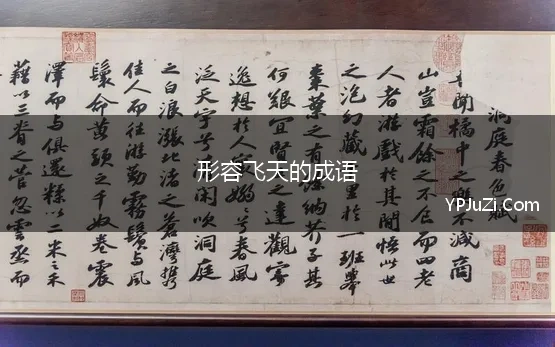 洞庭春色賦
聞橘中之樂不減商
山豈霜餘之不食而四老
人者游戲於其間悟此世
之泡幻藏里於一班舉
棗葉之有餘納芥子其
何艱宜賢之達觀寄
逸想於人嫋嫋兮春風
泛天宇兮閑吹洞庭
之白浪漲北渚之蒼灣攜
佳人而往游勤霧鬢與風
鬟命黃頭之千奴卷震
澤而與俱還糅以二米之禾
藉以三脊之菅忽雲烝而
形容飞天的成语
YPJuZi.Com